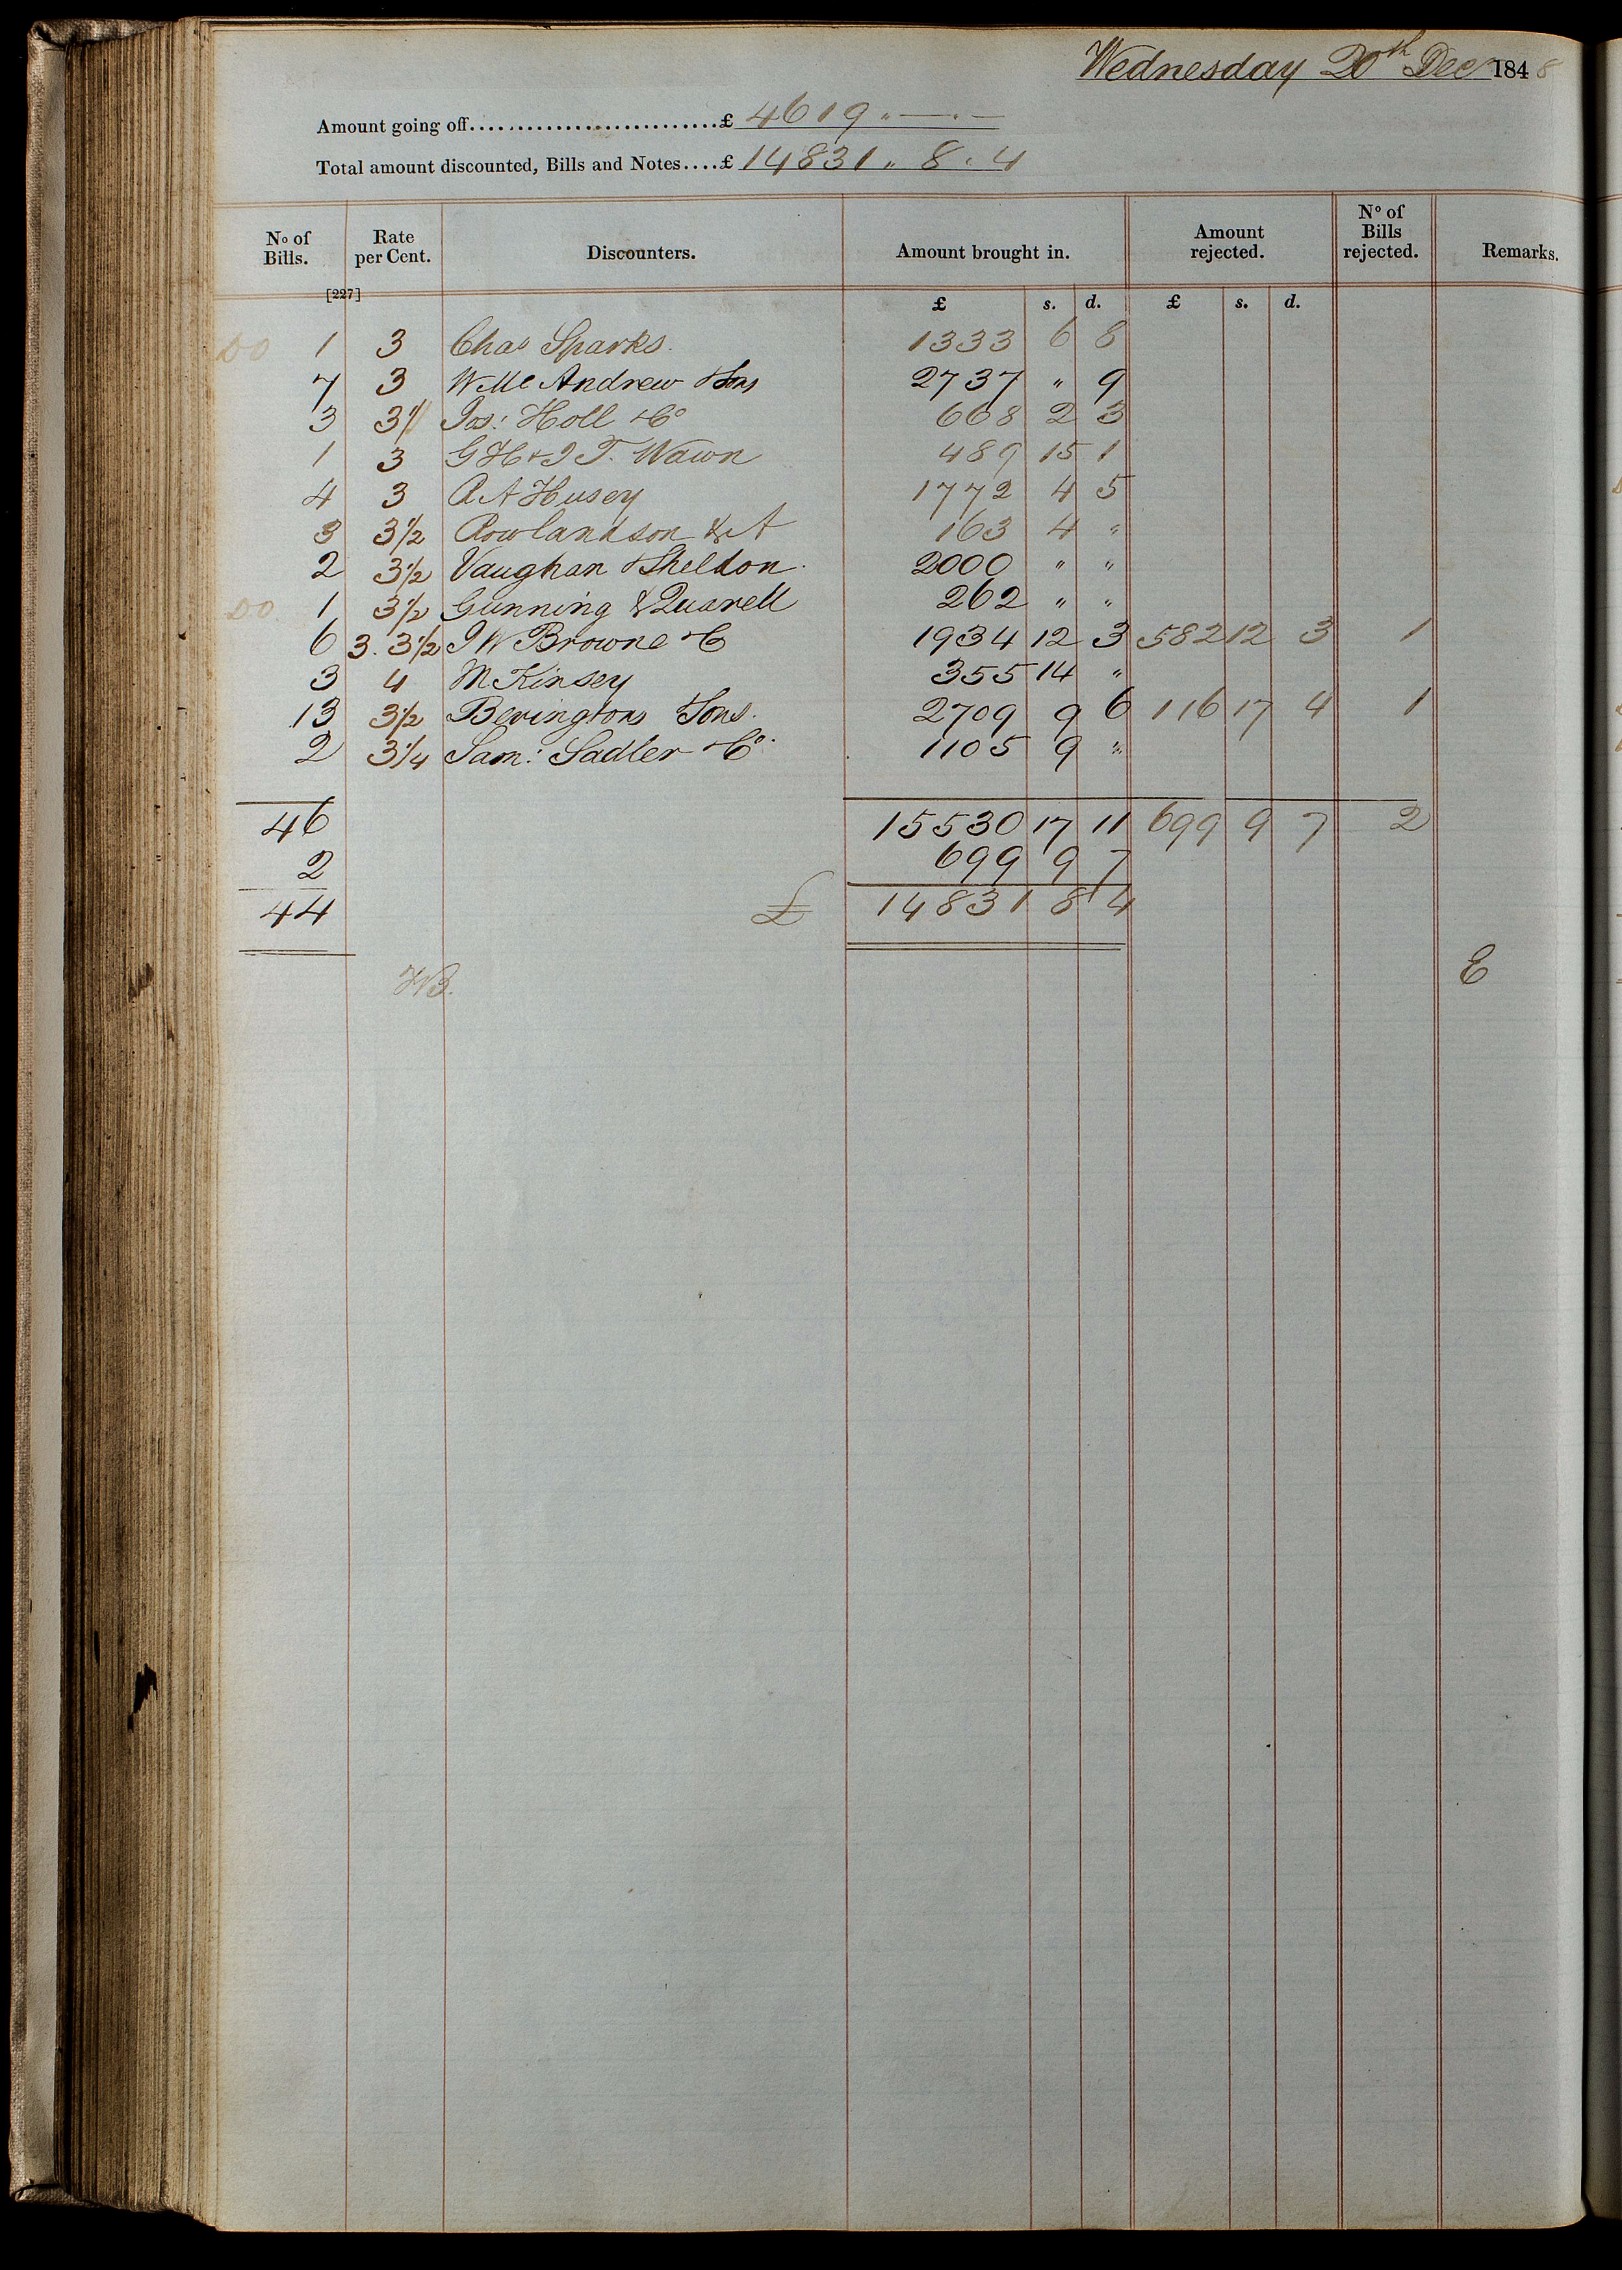 Wednesday 20th Decr 1848
Amount going off..........................£ 4619 " — . —
Total amount discounted, Bills and Notes....£ 14831 " 8 . 4
No of Bills. Rate per Cent. Discounters. Amount brought in. Amount rejected. No of Bills rejected. Remarks.
[227]
£ s. d. £ s. d.
DO 1 3 Chas Sparks. 1333 6 8
7 3 W Mc Andrew & Sons 2737 " 9
3 3½ Jos: Holl & Co 668 2 3
1 3 G H & J T. Wawn 489 15 1
4 3 R A Husey 1772 4 5
3 3½ Rowlandson & A 163 4 "
2 3½ Vaughan & Sheldon. 2000 " "
DO. 1 3½ Gunning & Quarell 262 " "
6 3. 3½ J W Browne & C 1934 12 3 582 12 3 1
3 4 M Kinsey 355 14 "
13 3½ Bevingtons & Sons. 2709 9 6 116 17 4 1
2 3¼ Sam: Sadler & Co. 1105 9 "
46 15530 17 11 699 9 7 2
2 699 9 7
44 £ 14831 8 4
E